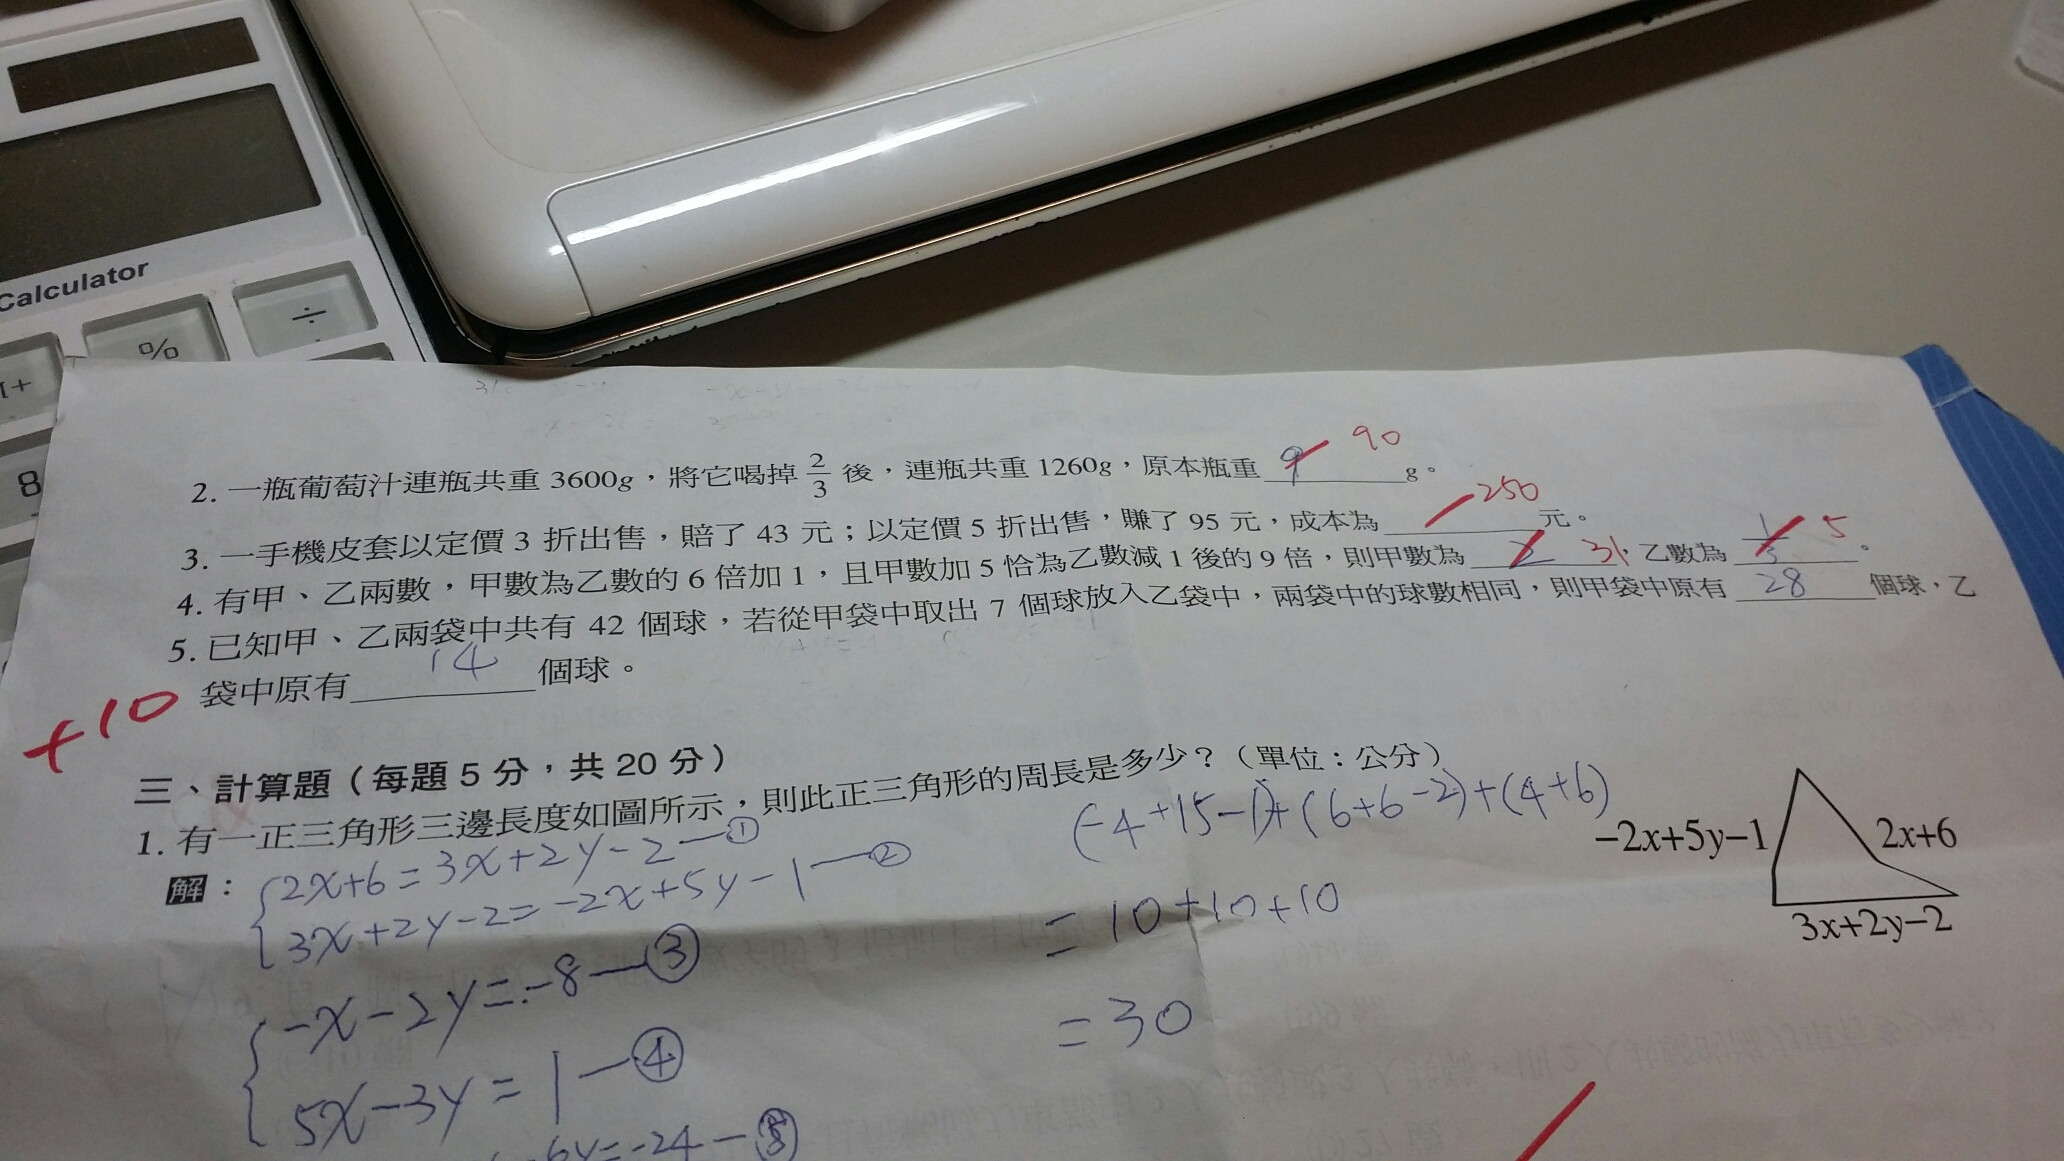 Calculator
%
÷
8
2. 一瓶葡萄汁連瓶共重 3600g，將它喝掉 2/3 後，連瓶共重 1260g，原本瓶重 9 90 g。
3. 一手機皮套以定價 3 折出售，賠了 43 元；以定價 5 折出售，賺了 95 元，成本為 250 元。
4. 有甲、乙兩數，甲數為乙數的 6 倍加 1，且甲數加 5 恰為乙數減 1 後的 9 倍，則甲數為 2 31，乙數為 1/3 5 。
5. 已知甲、乙兩袋中共有 42 個球，若從甲袋中取出 7 個球放入乙袋中，兩袋中的球數相同，則甲袋中原有 28 個球，乙
袋中原有 14 個球。
+10
三、計算題（每題 5 分，共 20 分）
1. 有一正三角形三邊長度如圖所示，則此正三角形的周長是多少？（單位：公分）
解：
2x+6=3x+2y-2—①
3x+2y-2=-2x+5y-1—②
-x-2y=-8—③
5x-3y=1—④
6y=-24—⑤
(-4+15-1)+(6+6-2)+(4+6)
=10+10+10
=30
-2x+5y-1
2x+6
3x+2y-2